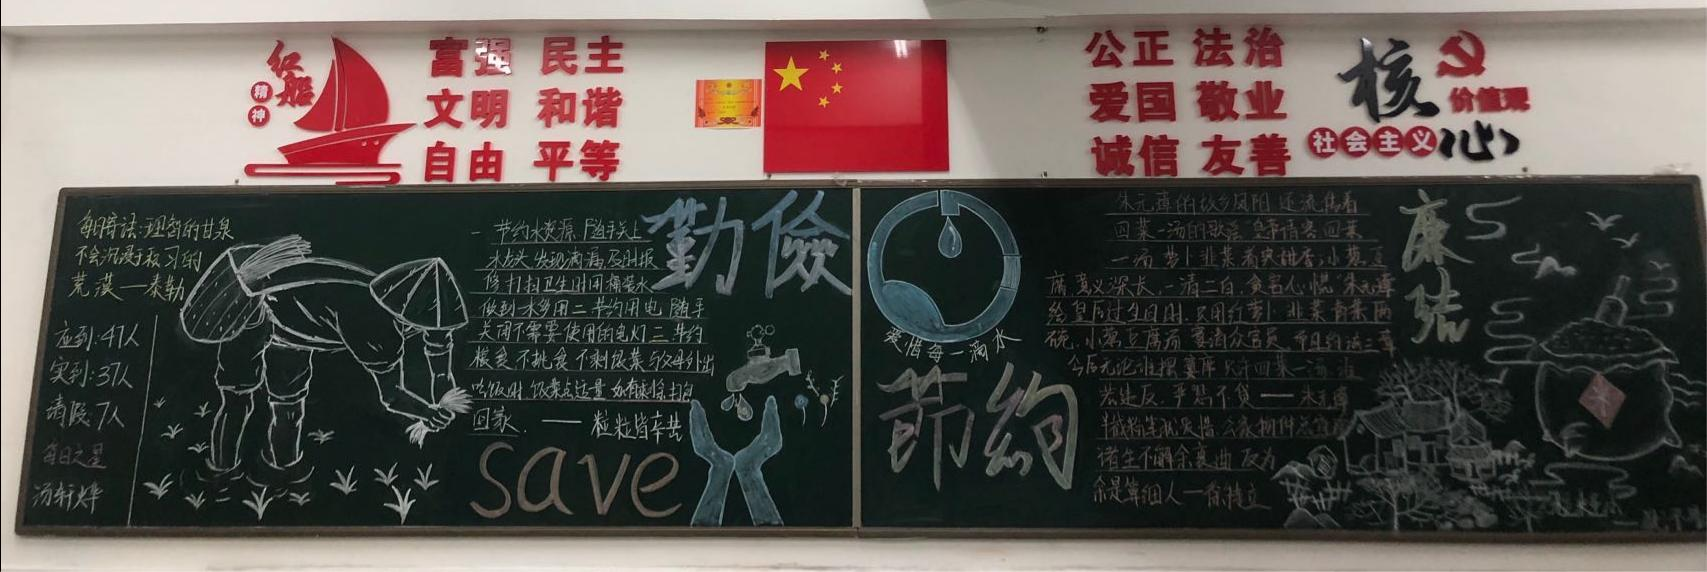 红船
精神
富强 民主
文明 和谐
自由 平等
公正 法治
爱国 敬业
诚信 友善
核心
价值观
社会主义
每日寄语:理智的甘泉
不会沉浸于权习的
荒漠——泰勒
应到:41人
实到:37人
请假:7人
每日之星
汤轩烨
一 节约水资源 随手关上
水龙头 发现滴漏及时报
修 打扫卫生时用桶装水
做到一水多用 二 节约用电 随手
关闭不需要使用的电灯 三 节约
粮食 不挑食 不剩饭菜 与父母外出
吃饭时 饭菜点适量 如有剩余打包
回家. ——粒粒皆辛苦
勤俭
save
爱惜每一滴水
節約
朱元璋的故乡凤阳 还流传着
四菜一汤的歌谣 皇帝请客 四菜
一汤 萝卜韭菜 着实甜香 小葱豆
腐 意义深长 一清二白 贪官心慌 朱元璋
给皇后过生日时 只用红萝卜 韭菜 青菜两
碗 小葱豆腐汤 宴请众官员 而且约法三章
今后无论谁摆宴席 只许四菜一汤 谁
若违反 严惩不贷——朱元璋
诸生不解余衷曲 反为
余是算细人——
廉洁